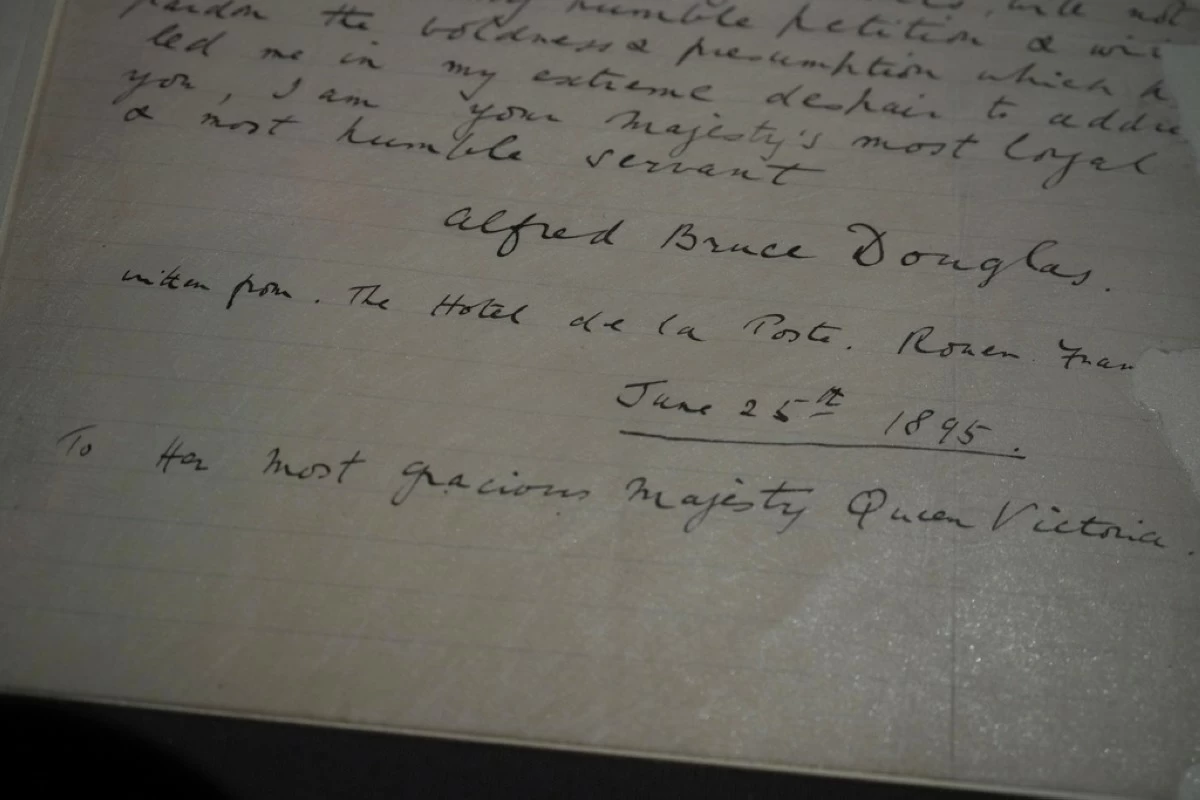 humble petition & wi
pardon the boldness & presumption which h
led me in my extreme despair to addre
you, I am your Majesty's most loyal
& most humble servant
Alfred Bruce Douglas.
written from. The Hotel de la Poste. Rouen. Fran
June 25th 1895.
To Her most gracious Majesty Queen Victoria.